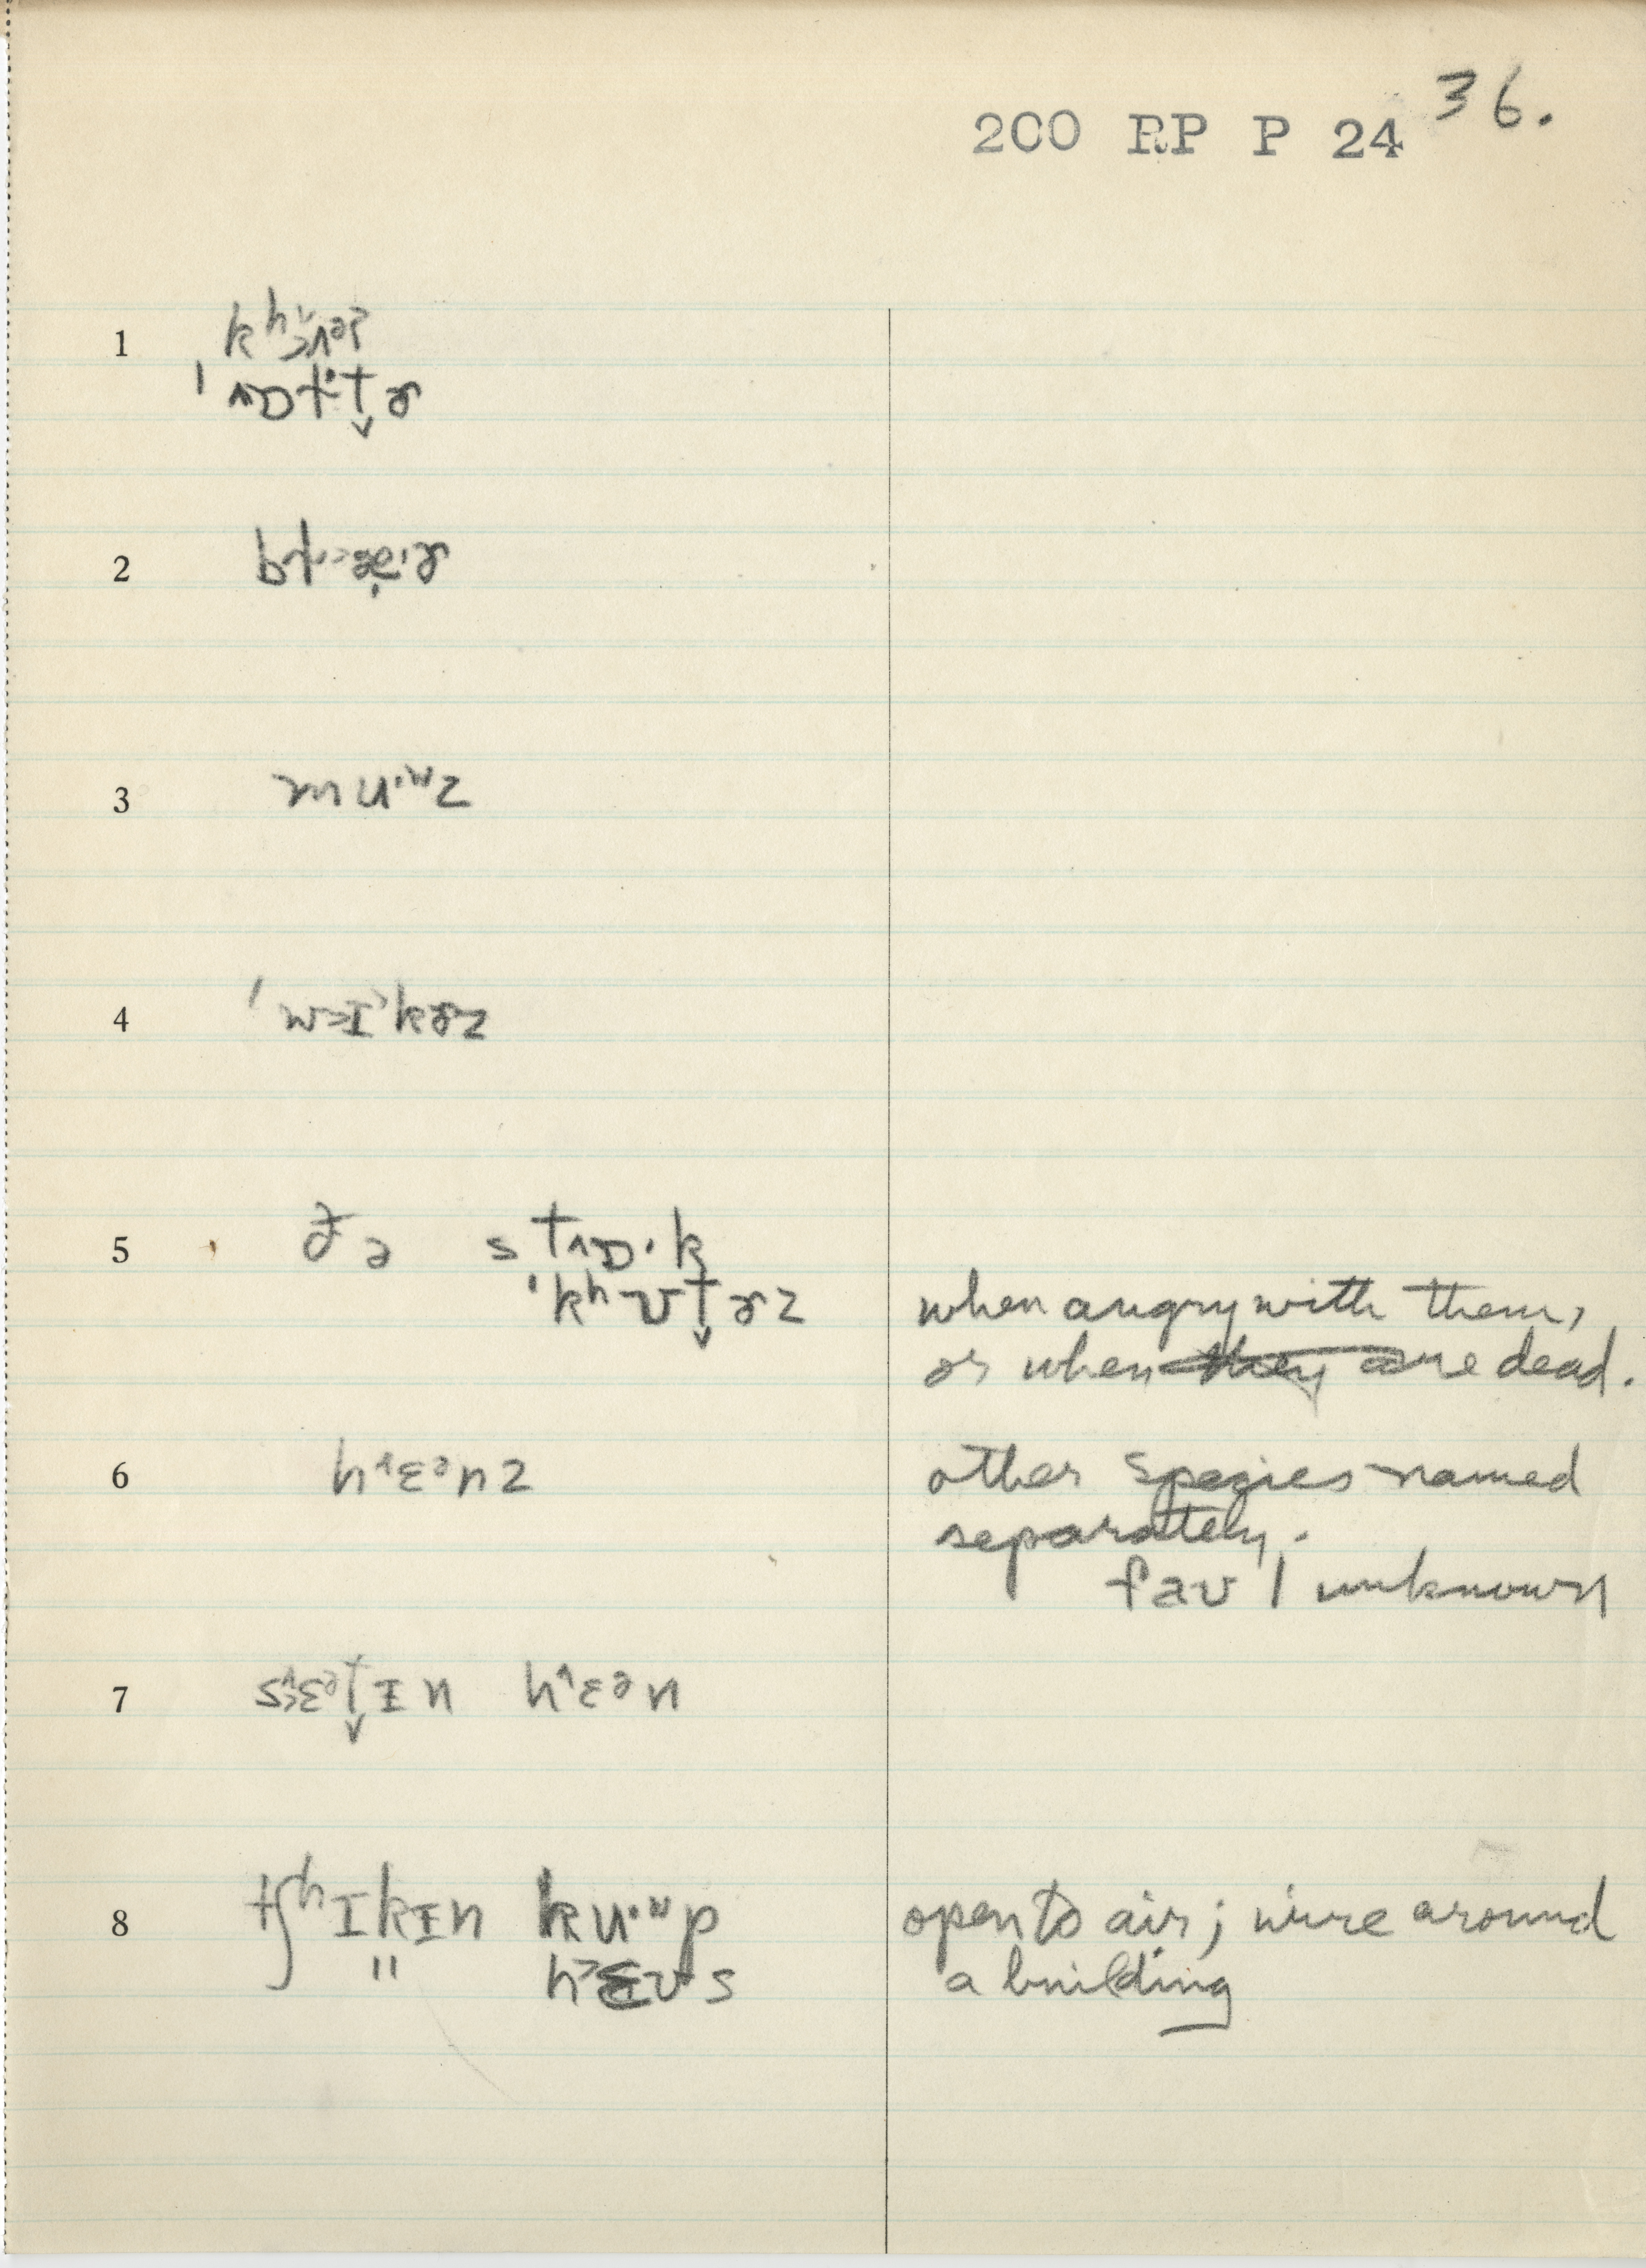 200 RP P 24 36.
1
2
3 mu·ʷz
4 ˈwɪ˃kɚz
5 ðə st^ɒ·k
ˈkʰʊt̬ɚz when angry with them,
or when ~~they~~ are dead.
6 h^ɛᵊnz other species named
separately.
fav / unknown
7 s^ɛᵊt̬ɪn h^ɛᵊn
8 tʃʰɪkɪn ku·ʷp open to air; wire around
" h˃ɛʊs a building